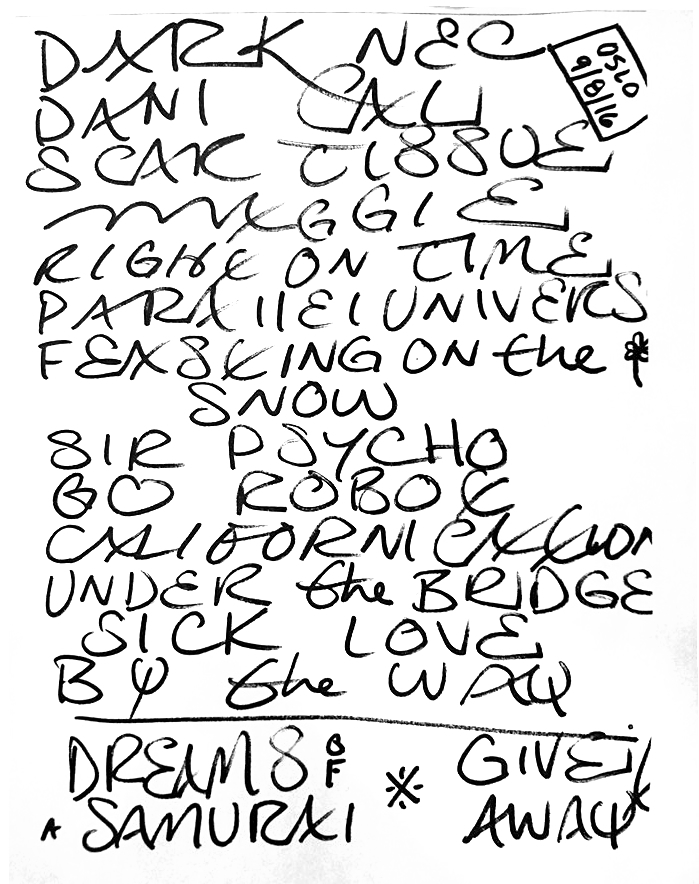 DARK NEC
OSLO
9/8/16
DANI CALI
SCAR TISSUE
MAGGIE
RIGHT ON TIME
PARAllEl UNIVERS
FEASTING ON the
SNOW
SIR PSYCHO
GO ROBOT
CALIFORNICATION
UNDER the BRIDGE
SICK LOVE
BY the WAY
DREAMS OF * GIVE it
A SAMURAI AWAY